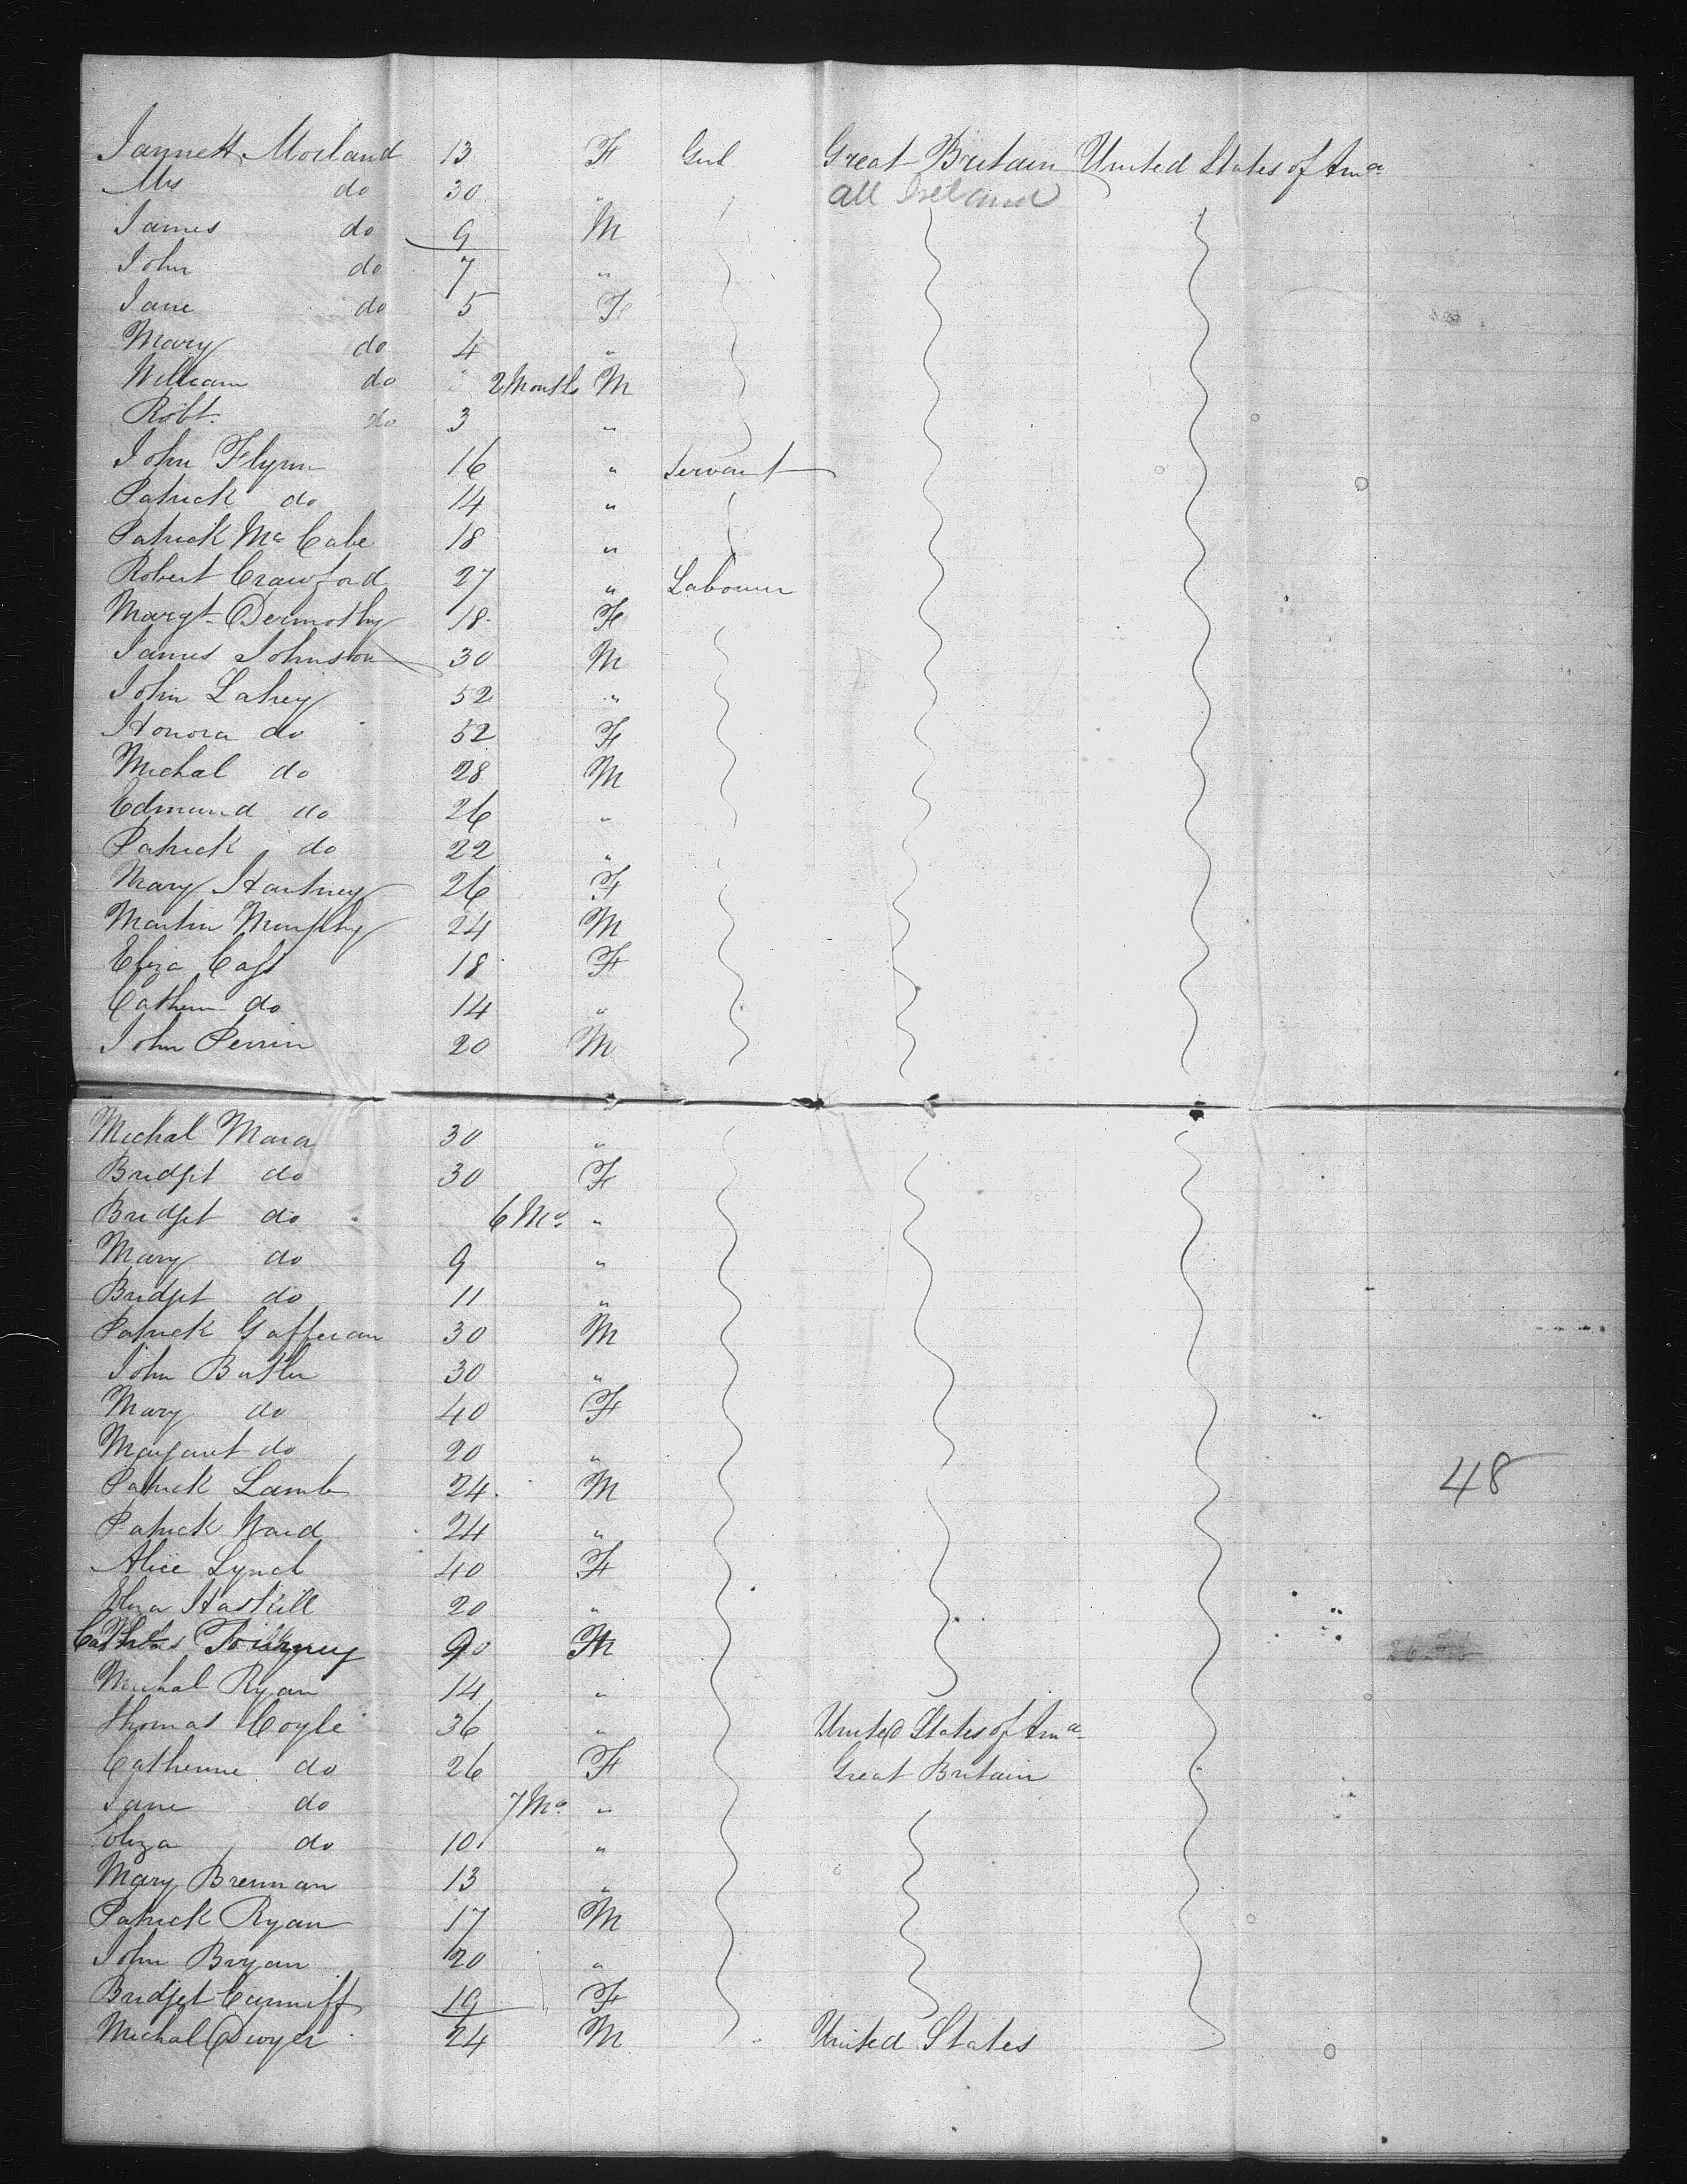 Jannett Morland 13 F Girl Great Britain United States of Ama
Mrs do 30 " all Ireland
James do 9 M
John do 7 "
Jane do 5 F
Mary do 4 "
William do 2 Months M
Robt. do 3 "
John Flynn 16 " Servant
Patrick do 14 "
Patrick Mc Cabe 18 "
Robert Crawford 27 " Labourer
Margt. Dermothy 18 F
James Johnston 30 M
John Lahey 52 "
Honora do 52 F
Michal do 28 M
Edmund do 26 "
Patrick do 22 "
Mary Hartney 26 F
Martin Murphy 24 M
Eliza Cass 18 F
Cathern do 14 "
John Perrin 20 M
Michal Mara 30 "
Bridget do 30 F
Bridget do 6 Mo. "
Mary do 9 "
Bridget do 11 "
Patrick Gafferan 30 M
John Butler 30 "
Mary do 40 F
Margaret do 20 "
Patrick Lamb 24 M 48
Patrick Ward 24 "
Alice Lynch 40 F
Eliza Haskill 20 "
Michal Ryan 14 "
Thomas Coyle 36 " United States of Ama
Catherine do 26 F Great Britain
Jane do 7 Mo. "
Eliza do 10 "
Mary Brennan 13 "
Patrick Ryan 17 M
John Bryan 20 "
Bridget Cunniff 19 F
Michal Dwyer 24 M United States